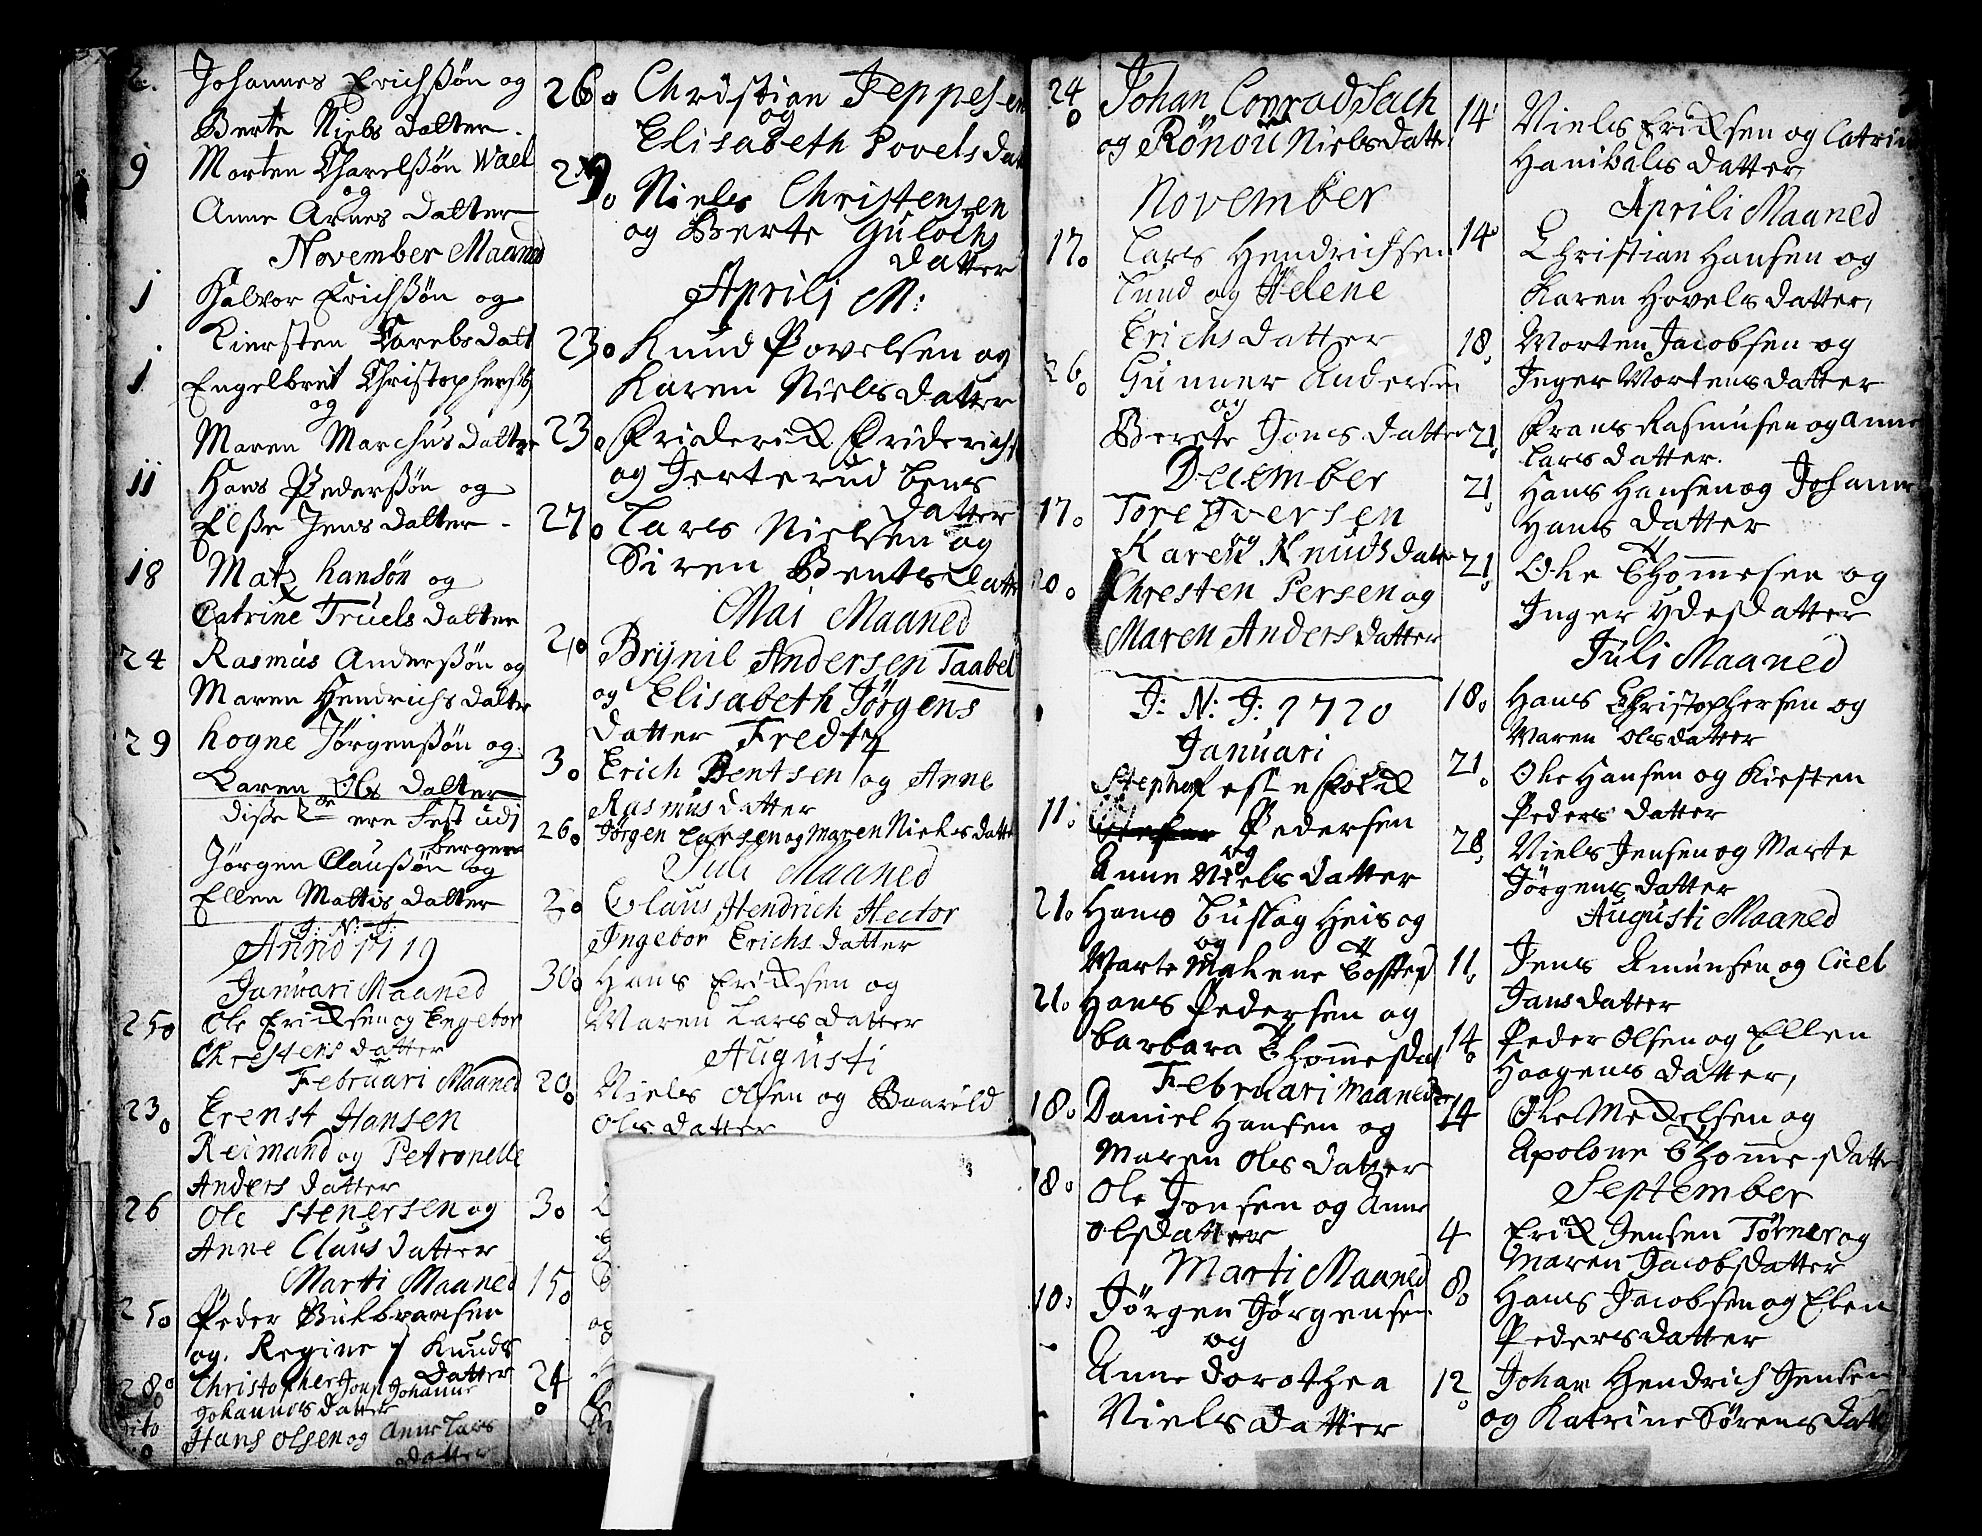 2. Johannes Erichßøn og
Berte Niels datter.
9 Morten Charelßøn Wael
og
Anne Arnes datter
November Maaned
1 Halvor Erichßøn og
Kiersten Torebs datt
1 Engelbret Christophersß
og
Maren Marchus datter
11 Hans Pederßøn og
Elße Jens datter.
18 Matz hansøn og
Catrine Truels datter
24 Rasmus Anderßøn og
Maren Hendrichs datter
29 hogne Jørgenßøn og
Karen Ols datter
diße 2de ere Fest udj
bergen
Jørgen Claußøn og
Ellen Mattis datter
J: N: J:
Anno 1719
Januari Maaned
25. Ole Ericksen og Engebor
Chrestens datter
Februari Maaned
23. Erenst Hansen
Reimand og Petronelle
Anders datter
26 Ole Stenersen og
Anne Claus datter
Marti Maaned
25. Peder Guldbransen
og Regine Knuds
datter
28. Christopher Jons Johanne
Johannes datter
dito Hans Olsen og Anne Lars
datter
26. Christian Jeppesen
og
Elisabeth Povels dat
29. Niels Christensen
og Berte Gulochs
datter
Aprili M:
23. Knud Povelsen og
Karen Niels datter
23. Friderick Friderichs
og Jerterud Lens
datter
27. Lars Nielsen og
Siren Bents datter
Mai Maaned
2. Brynil Andersen Taabel
og Elisabeth Jørgens
datter Fredtz
3. Erich Bentsen og Anne
Rasmus datter
26. Jørgen Larsen og Maren Niels datt
Juli Maaned
2. Claus Hendrich Hector
Ingebor Erichs datter
30. Hans Ericksen og
Maren Lars datter
Augusti
20. Niels Olsen og Baarild
Ols datter
3.
15.
og
24.
24. Johan Conrad Sach
og Rønou Niels datt.
November
17. Lars Hendrichsen
Lund og Helene
Erichs datter
26. Gunner Andersen
og
Berete Jons datter
December
17. Tore Iversen
og
Karen Knuds datter
20. Chresten Persen og
Maren Anders datter
J: N: J: 1720
Januari
11. Pedersen
og
Anne Niels datter
21. Hans Buslag Heis og
og
Marte Malene
21. Hans Pedersen og
barbara Thommesdat
Februari Maaned
18. Daniel Hansen og
Maren Ols datter
18. Ole Jonsen og Anne
Olsdatter
Marti Maaned
10. Jørgen Jørgensen
og
Anne dorothea
Niels datter
14. Niels Ericksen og Catrin
Hanibals datter
Aprili Maaned
14. Christian Hansen og
Karen Hovels datter,
18. Morten Jacobsen og
Inger Mortens datter
21. Frans Rasmusen og Anne
Lars datter.
21. Hans Hansen og Johanne
Hans datter
21. Ole Thommesen og
Inger Ydesdatter
Juli Maaned
18. Hans Christophersen og
Maren Olsdatter
21. Ole Hansen og Kiesten
Peders datter
28. Niels Jensen og Marte
Jørgens datter
Augusti Maaned
11. Jens Amunsen og Cicel
Jansdatter
14. Peder Olsen og Ellen
Haagens datter,
14 Ole Mickelsen og
Apolone Thommesdatt
September
4 Erick Jensen Tørner og
Maren Jacobsdatter
8. Hans Jacobsen og Elen
Pedersdatter
12. Johan Hendrich Jensen
og Katrine Sørens datt